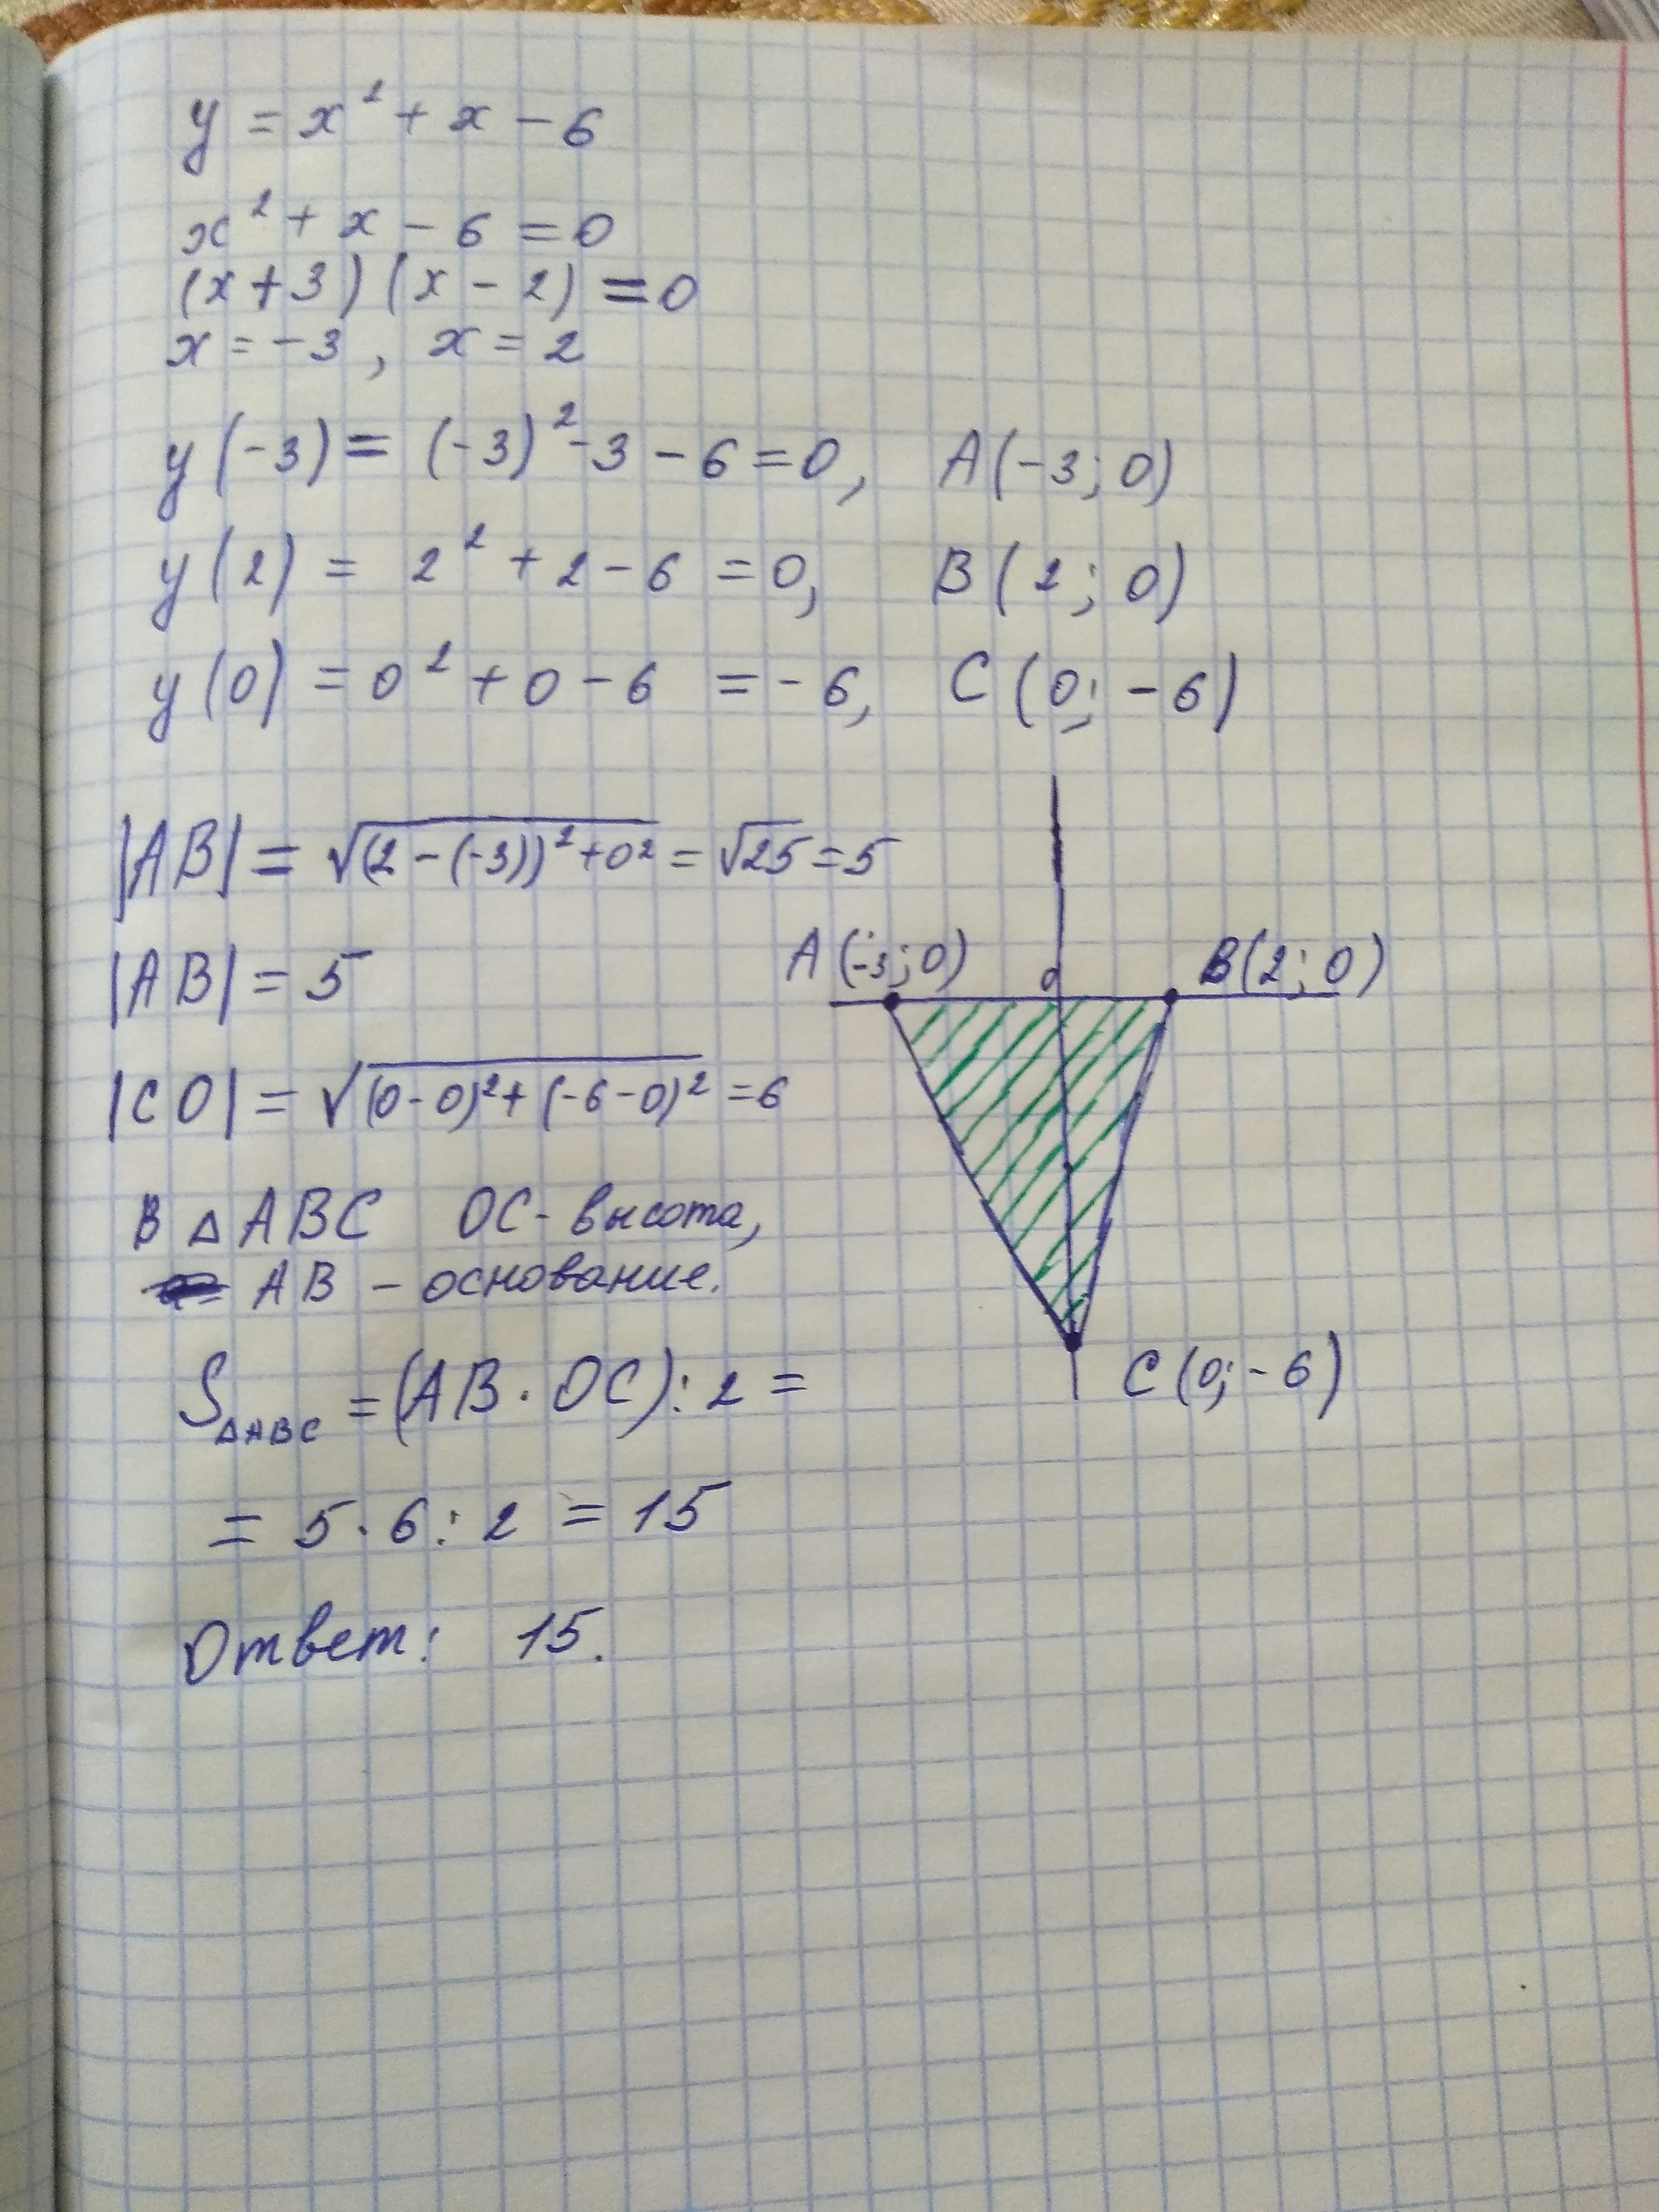 y = x² + x - 6
x² + x - 6 = 0
(x + 3) (x - 2) = 0
x = -3, x = 2
y(-3) = (-3)² - 3 - 6 = 0, A(-3; 0)
y(2) = 2² + 2 - 6 = 0, B(2; 0)
y(0) = 0² + 0 - 6 = -6, C(0; -6)
|AB| = √((2 - (-3))² + 0²) = √25 = 5
A(-3; 0) 0 B(2; 0)
|AB| = 5
|CO| = √((0 - 0)² + (-6 - 0)²) = 6
В △ABC OC - высота,
AB - основание.
C(0; -6)
S△ABC = (AB · OC) : 2 =
= 5 · 6 : 2 = 15
Ответ: 15.